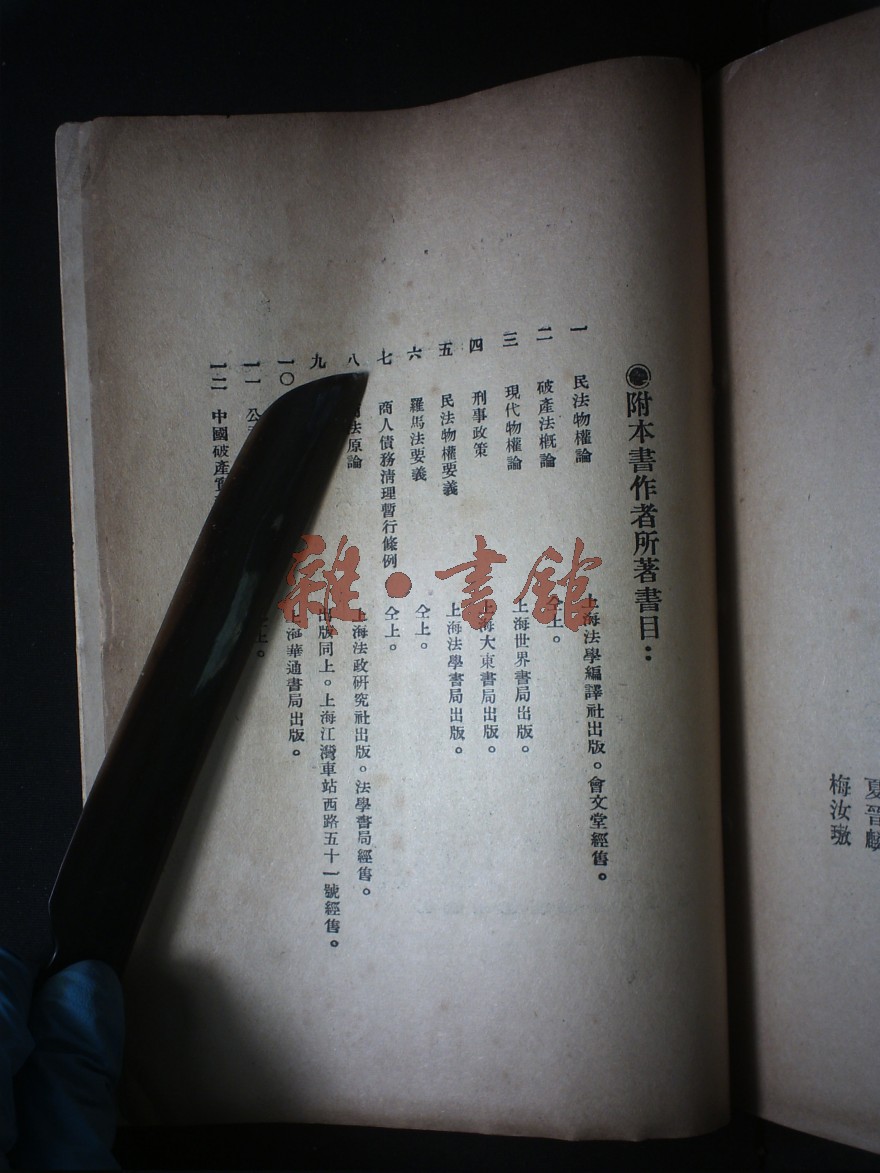 夏晉麟
梅汝璈
附本書作者所著書目：
一 民法物權論 上海法學編譯社出版。會文堂經售。
二 破產法概論 仝上。
三 現代物權論 上海世界書局出版。
四 刑事政策 上海大東書局出版。
五 民法物權要義 上海法學書局出版。
六 羅馬法要義 仝上。
七 商人債務清理暫行條例 仝上。
八 法原論 上海法政研究社出版。法學書局經售。
九 出版同上。上海江灣車站西路五十一號經售。
一〇 上海華通書局出版。
一一 公 上。
一二 中國破產
雜·書館